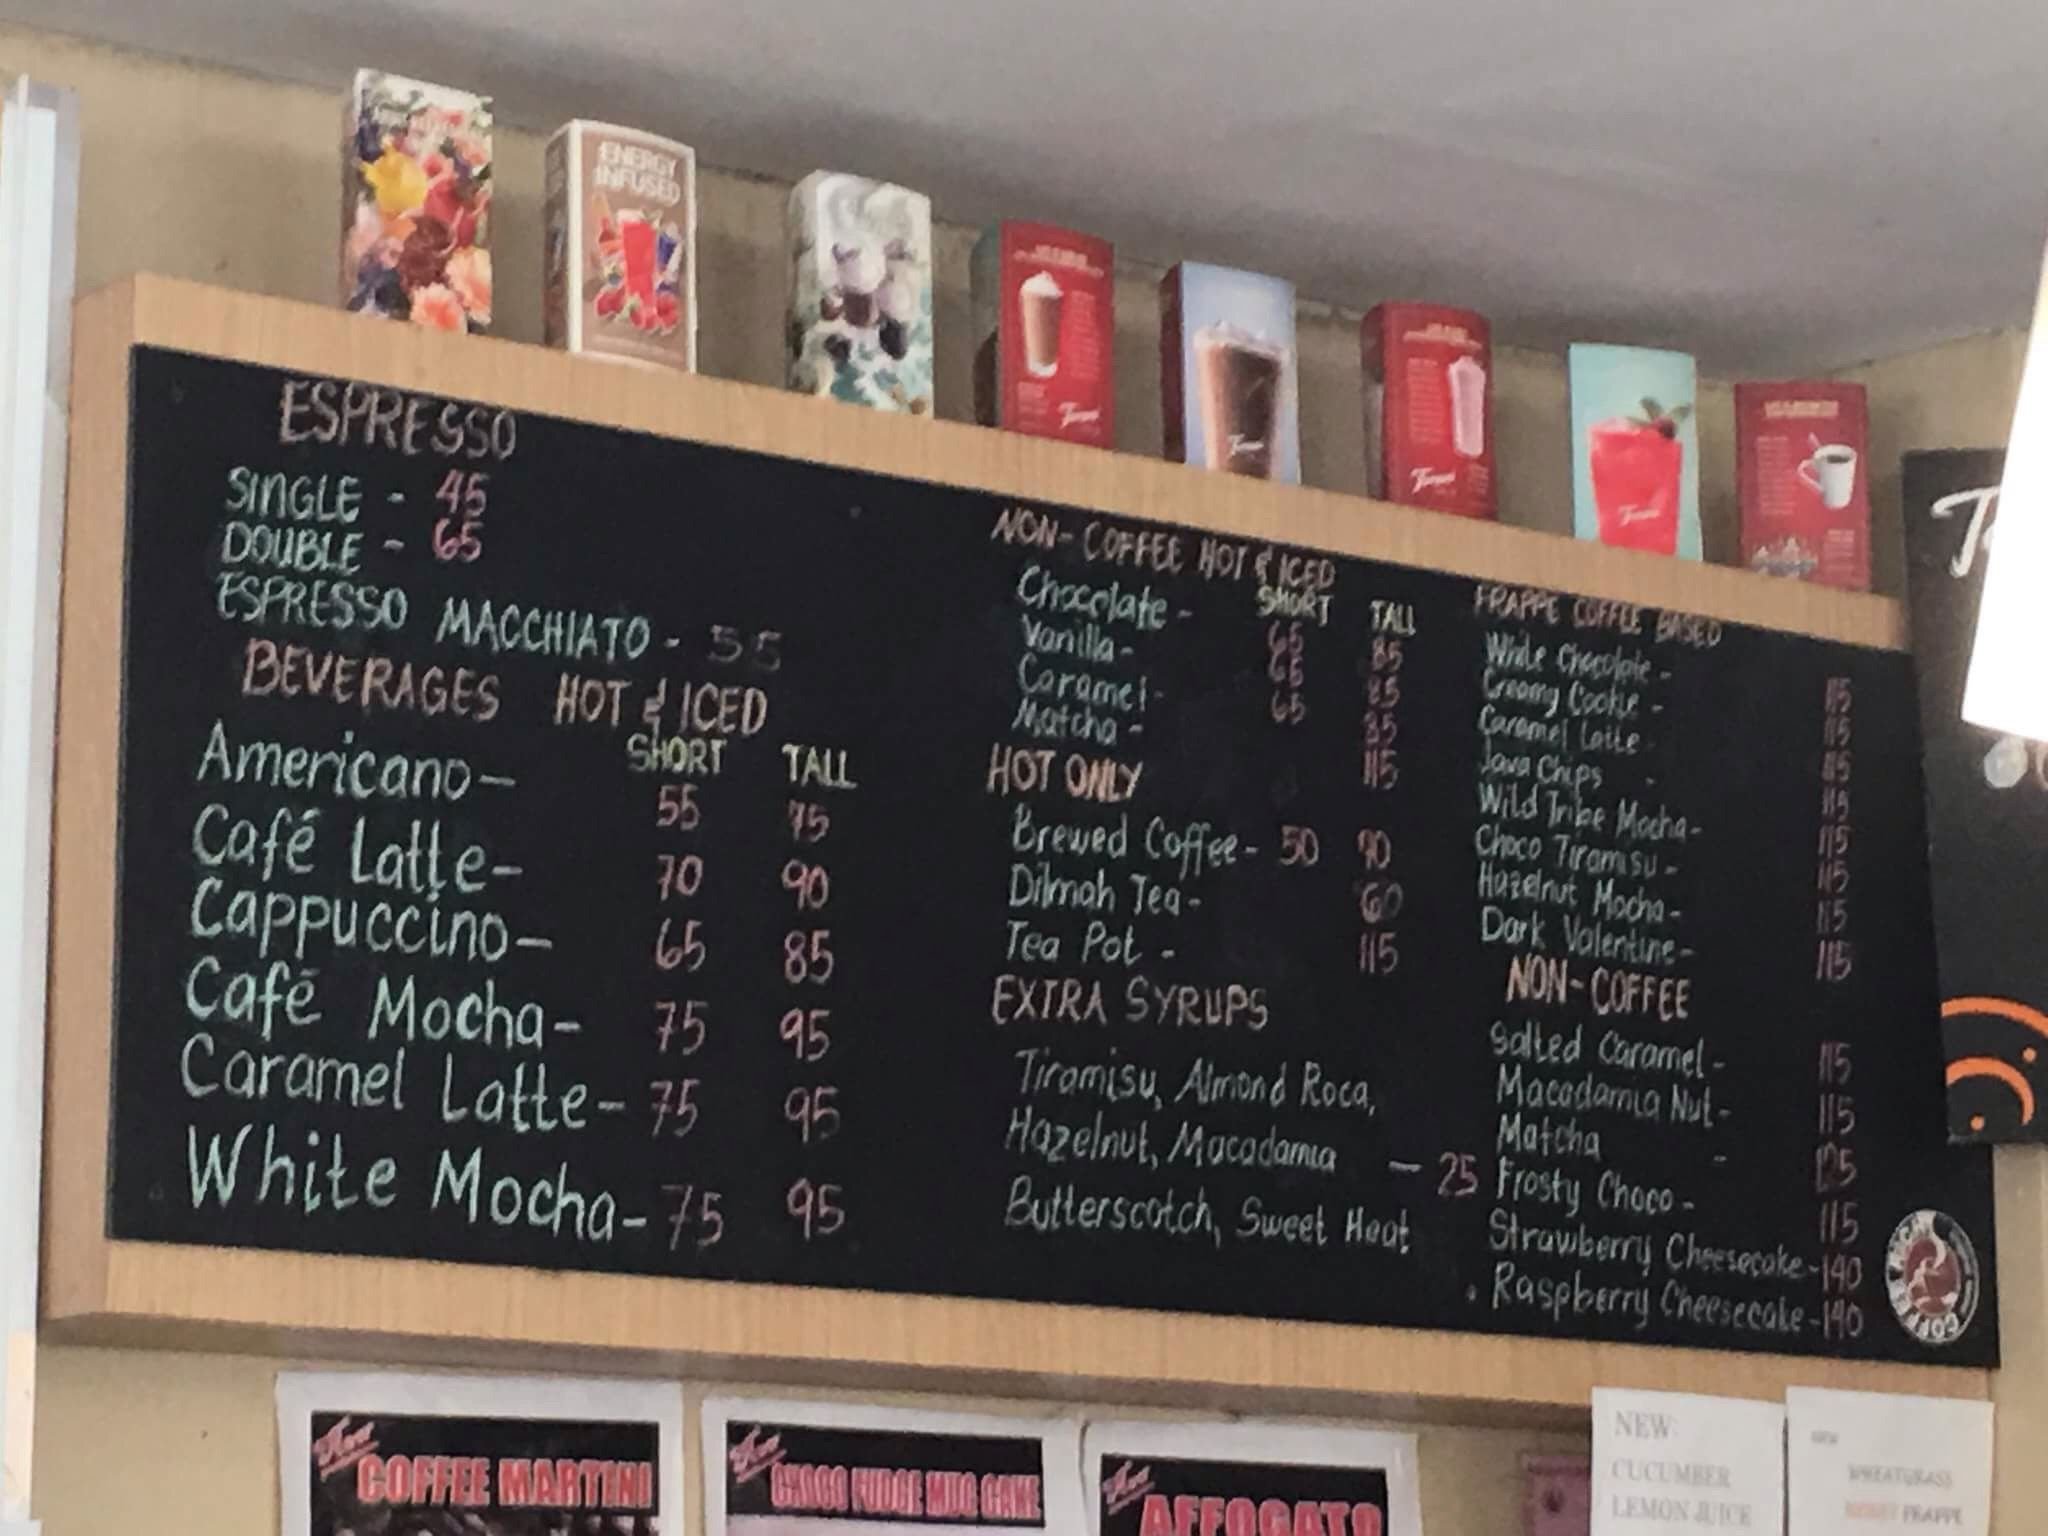 ENERGY
INFUSED
ESPRESSO
SINGLE - 45
DOUBLE - 65
ESPRESSO MACCHIATO - 55
BEVERAGES HOT & ICED
SHORT TALL
Americano- 55 75
Café Latte- 70 90
Cappuccino- 65 85
Café Mocha- 75 95
Caramel Latte- 75 95
White Mocha- 75 95
NON-COFFEE HOT & ICED
SHORT TALL
Chocolate - 65 85
Vanilla- 65 85
Caramel- 65 85
Matcha- 115
HOT ONLY
Brewed Coffee- 50 90
Dilmah Tea- 60
Tea Pot - 115
EXTRA SYRUPS
Tiramisu, Almond Roca,
Hazelnut, Macadamia - 25
Butterscotch, Sweet Heat
FRAPPE COFFEE BASED
White Chocolate - 115
Creamy Cookie - 115
Caramel Latte - 115
Java Chips - 115
Wild Tribe Mocha- 115
Choco Tiramisu - 115
Hazelnut Mocha- 115
Dark Valentine- 115
NON-COFFEE
Salted Caramel- 115
Macadamia Nut- 115
Matcha - 125
Frosty Choco - 115
Strawberry Cheesecake-140
Raspberry Cheesecake-140
COFFEETRIBE
COFFEE MARTINI
CHOCO FUDGE MUG CAKE
AFFOGATO
NEW:
CUCUMBER
LEMON JUICE
NEW
WHEATGRASS
FRAPPE